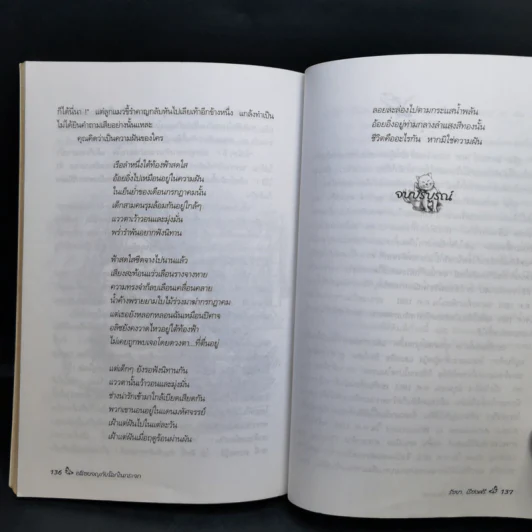 ก็ได้นี่นา !" แต่ลูกแมวขี้รำคาญกลับหันไปเลียเท้าอีกข้างหนึ่ง แกล้งทำเป็น
ไม่ได้ยินคำถามเสียอย่างนั้นแหละ
คุณคิดว่าเป็นความฝันของใคร
เรือลำหนึ่งใต้ท้องฟ้าสดใส
อ้อยอิ่งไปเหมือนอยู่ในความฝัน
ในเย็นย่ำของเดือนกรกฎาคมนั้น
เด็กสามคนรุมล้อมกันอยู่ใกล้ๆ
แววตาเว้าวอนและมุ่งมั่น
พร่ำรำพันอยากฟังนิทาน
ฟ้าสดใสซีดจางไปนานแล้ว
เสียงสะท้อนแว่วเลือนรางจางหาย
ความทรงจำก็ลบเลือนเคลื่อนคลาย
น้ำค้างพรายยามใบไม้ร่วงมาฆ่ากรกฎาคม
แต่เธอยังหลอกหลอนฉันเหมือนปีศาจ
อลิซยังวาดไหวอยู่ใต้ท้องฟ้า
ไม่เคยถูกพบเจอโดยดวงตา...ที่ตื่นอยู่
แต่เด็กๆ ยังรอฟังนิทานกัน
แววตานั้นเว้าวอนและมุ่งมั่น
ช่างน่ารักเข้ามาใกล้เบียดเสียดกัน
พวกเขานอนอยู่ในแดนมหัศจรรย์
เฝ้าแต่ฝันไปในแต่ละวัน
เฝ้าแต่ฝันเมื่อฤดูร้อนผ่านผัน
136
ลอยละล่องไปตามกระแสน้ำพลัน
อ้อยอิ่งอยู่ท่ามกลางลำแสงสีทองนั้น
ชีวิตคืออะไรกัน หากมิใช่ความฝัน
จบบริบูรณ์
137